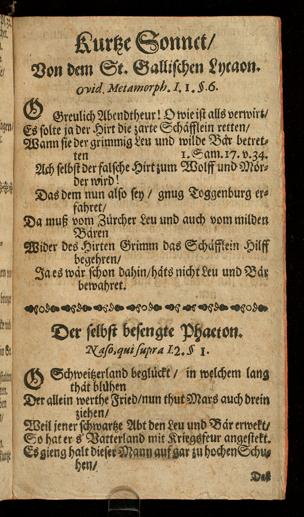 Kurtze Sonnet/
Von dem St. Gallischen Lycaon.
Ovid. Metamorph. I. 1. §. 6.
O Greulich Abendtheur! O wie ist alls verwirt/
Es solte ja der Hirt die zarte Schäfflein retten/
Wann sie der grimmig Leu und wilde Bär betret-
ten 1. Sam. 17. v. 34.
Ach selbst der falsche Hirt zum Wolff und Mör-
der wird!
Das dem nun also sey / gnug Toggenburg er-
fahret/
Da muß vom Zürcher Leu und auch vom milden
Bären
Wider des Hirten Grimm das Schäfflein Hilff
begehren/
Ja es wär schon dahin/häts nicht Leu und Bär
bewahret.
Der selbst besengte Phaeton.
Naso, qui supra I. 2. § 1.
O Schweitzerland beglückt / in welchem lang
thät blühen
Der allein werthe Fried/nun thut Mars auch drein
ziehen/
Weil jener schwartze Abt den Leu und Bär erwekt/
So hat er s' Vatterland mit Kriegsfeur angestekt.
Es gieng halt dieser Mann auf gar zu hochen Schu-
hen/
Daß